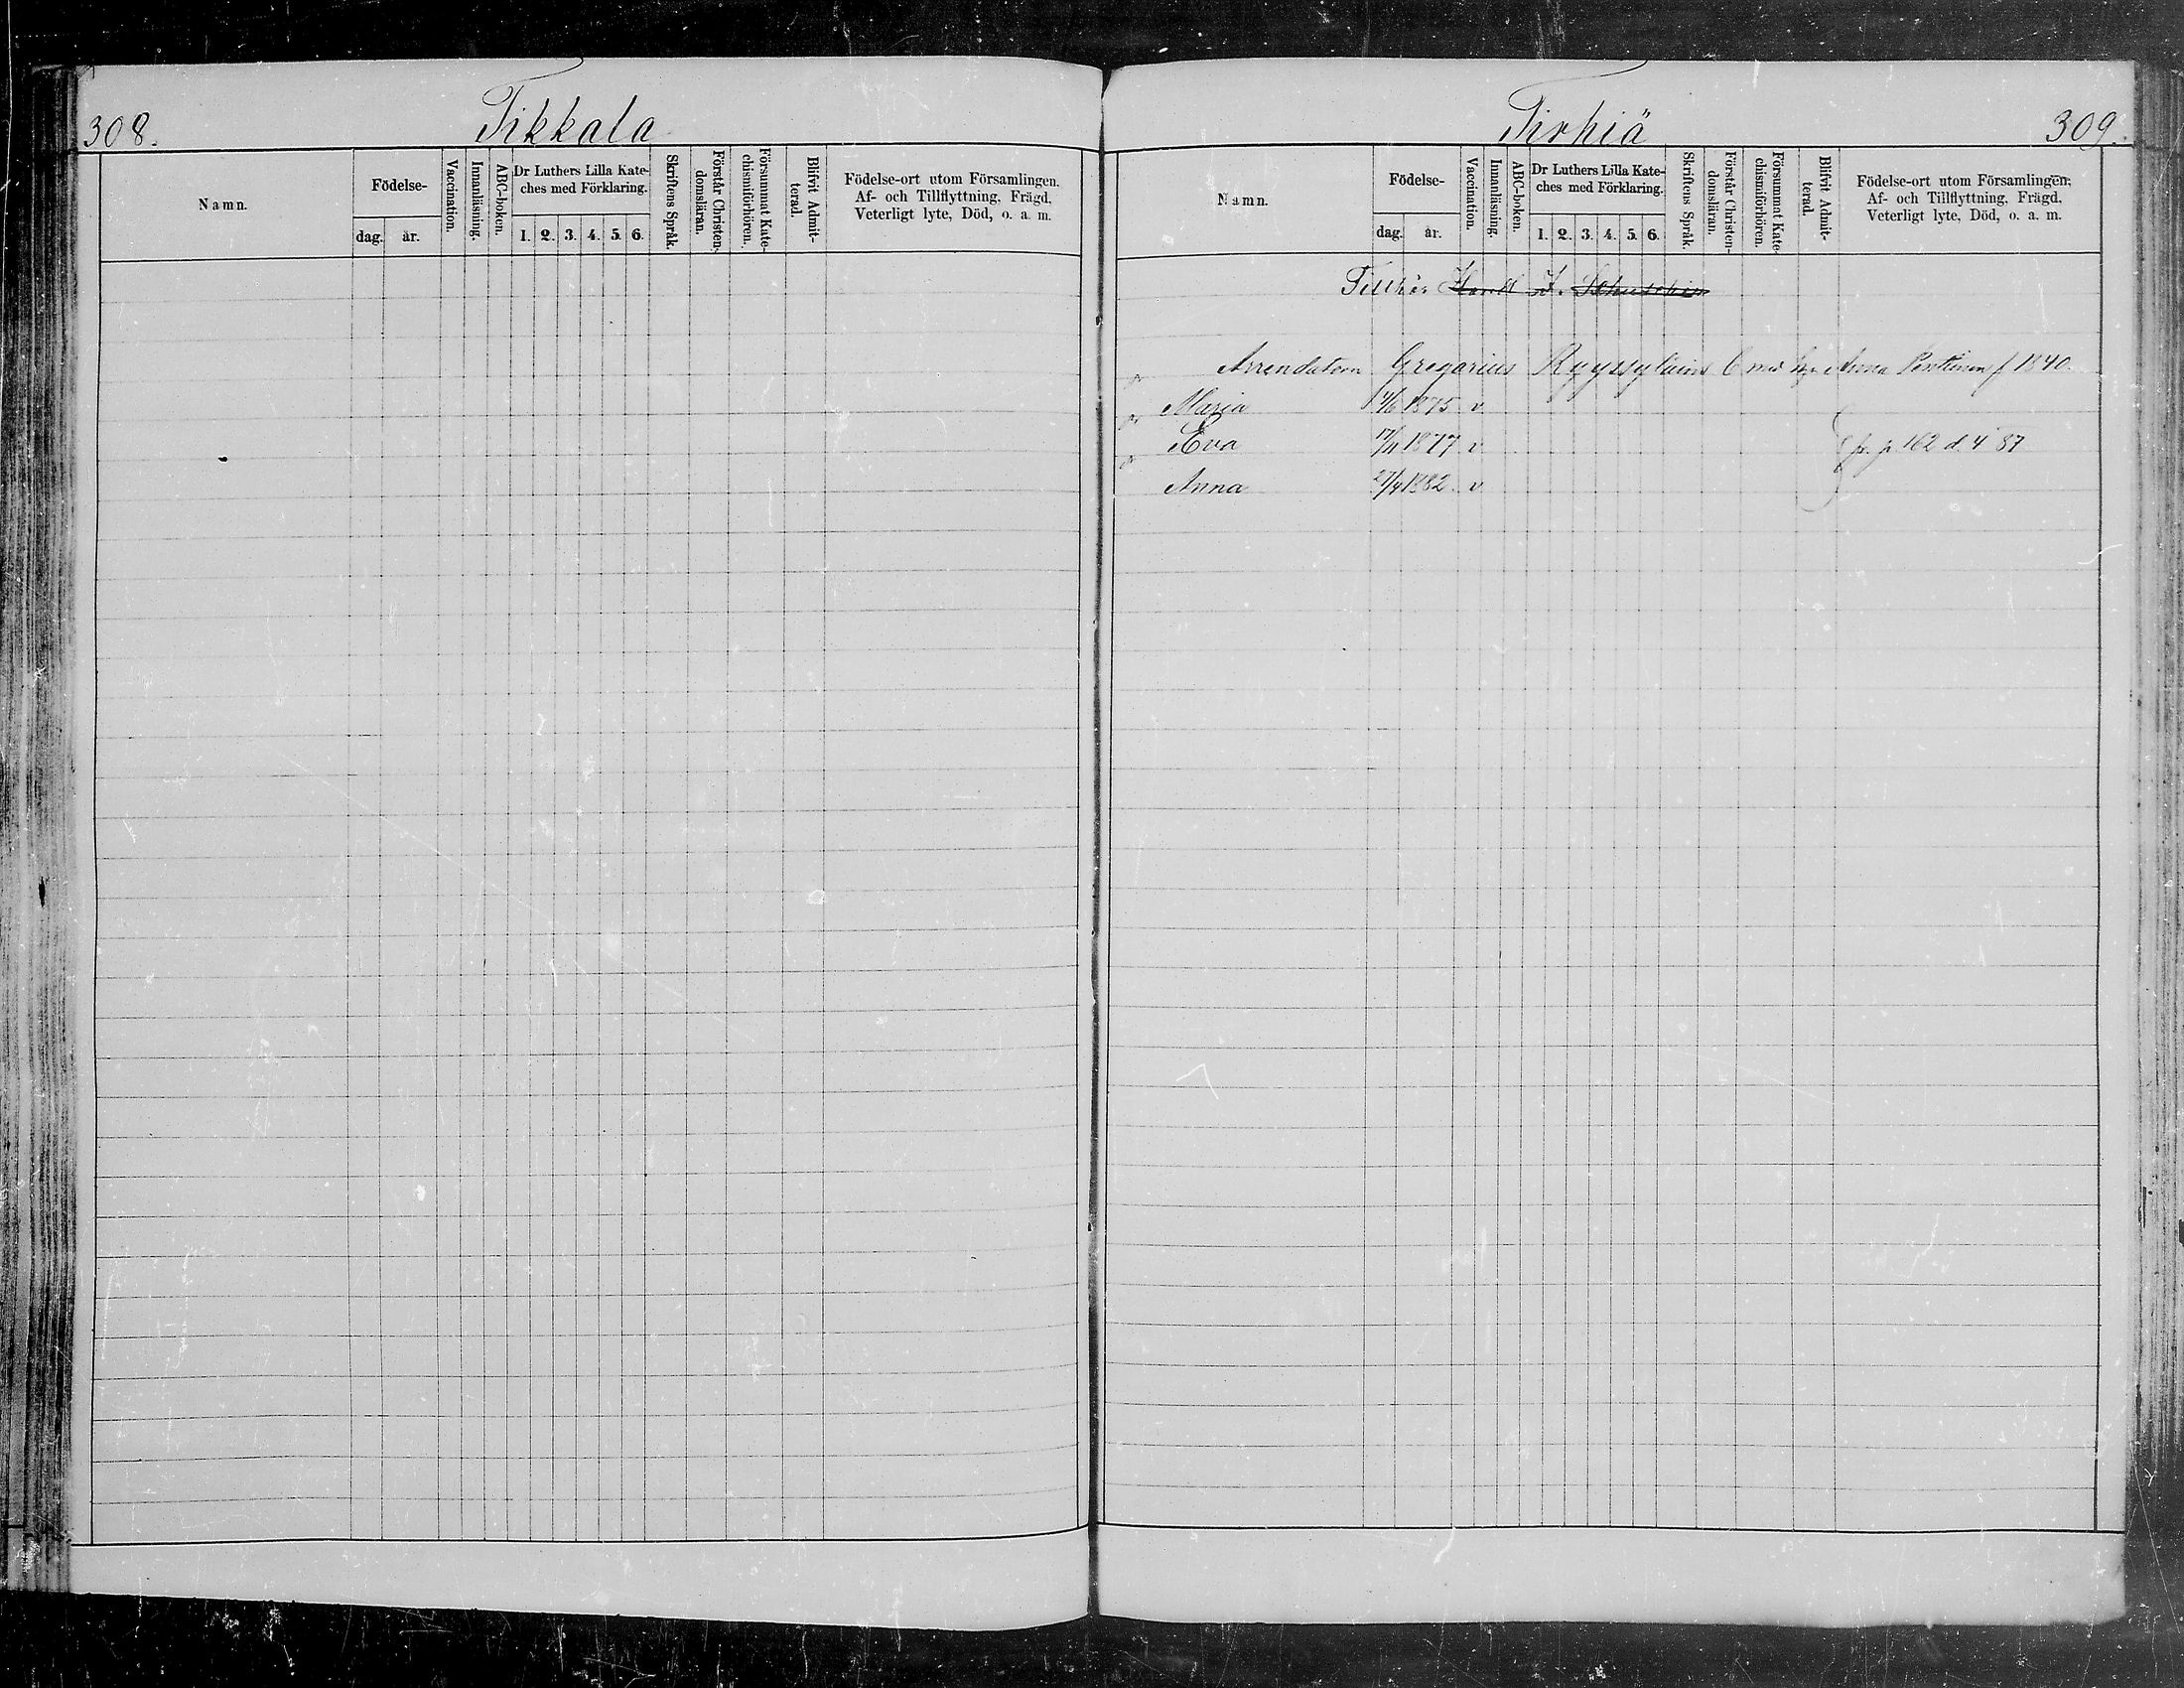 308.
Tikkala
Namn.
Födelse-
dag.
år.
Vaccination.
Innanläsning.
ABC-boken.
Dr Luthers Lilla Kate-
ches med Förklaring.
1. 2. 3. 4. 5. 6.
Skriftens Språk.
Förstår Christen-
domsläran.
Försummat Kate-
chismiförhören.
Blifvit Admit-
terad.
Födelse-ort utom Församlingen.
Af- och Tillflyttning, Frägd,
Veterligt lyte, Död, o. a. m.
Tirhiä
309.
Namn.
Födelse-
dag.
år.
Vaccination.
Innanläsning.
ABC-boken.
Dr Luthers Lilla Kate-
ches med Förklaring.
1. 2. 3. 4. 5. 6.
Skriftens Språk.
Förstår Christen-
domsläran.
Försummat Kate-
chismiförhören.
Blifvit Admit-
terad.
Födelse-ort utom Församlingen,
Af- och Tillflyttning, Frägd,
Veterligt lyte, Död, o. a. m.
Tillhör
Arrendatorn Gregorius Anna Penttinen f 1840.
Maria 4/6 1875 v
Eva 17/11 1877 v fr. p 162 d. 4 87
Anna 27/4 1882 v